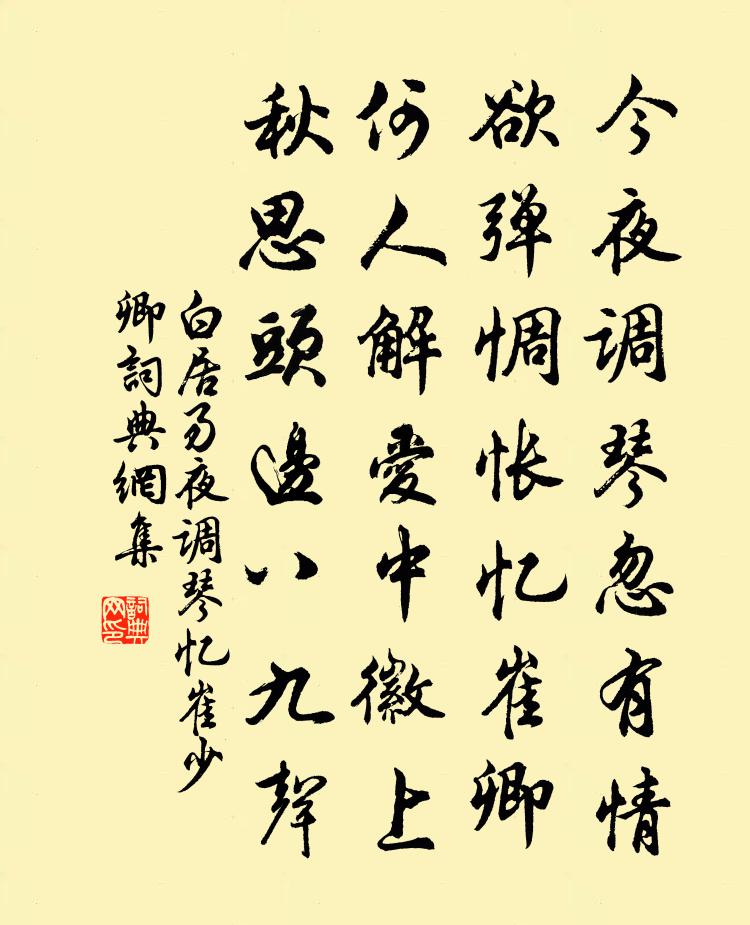 今夜调琴忽有情
欲弹惆怅忆崔卿
何人解爱中徽上
秋思頭邊八九聲
白居易夜调琴忆崔少
卿詞典網集
詞典
网印